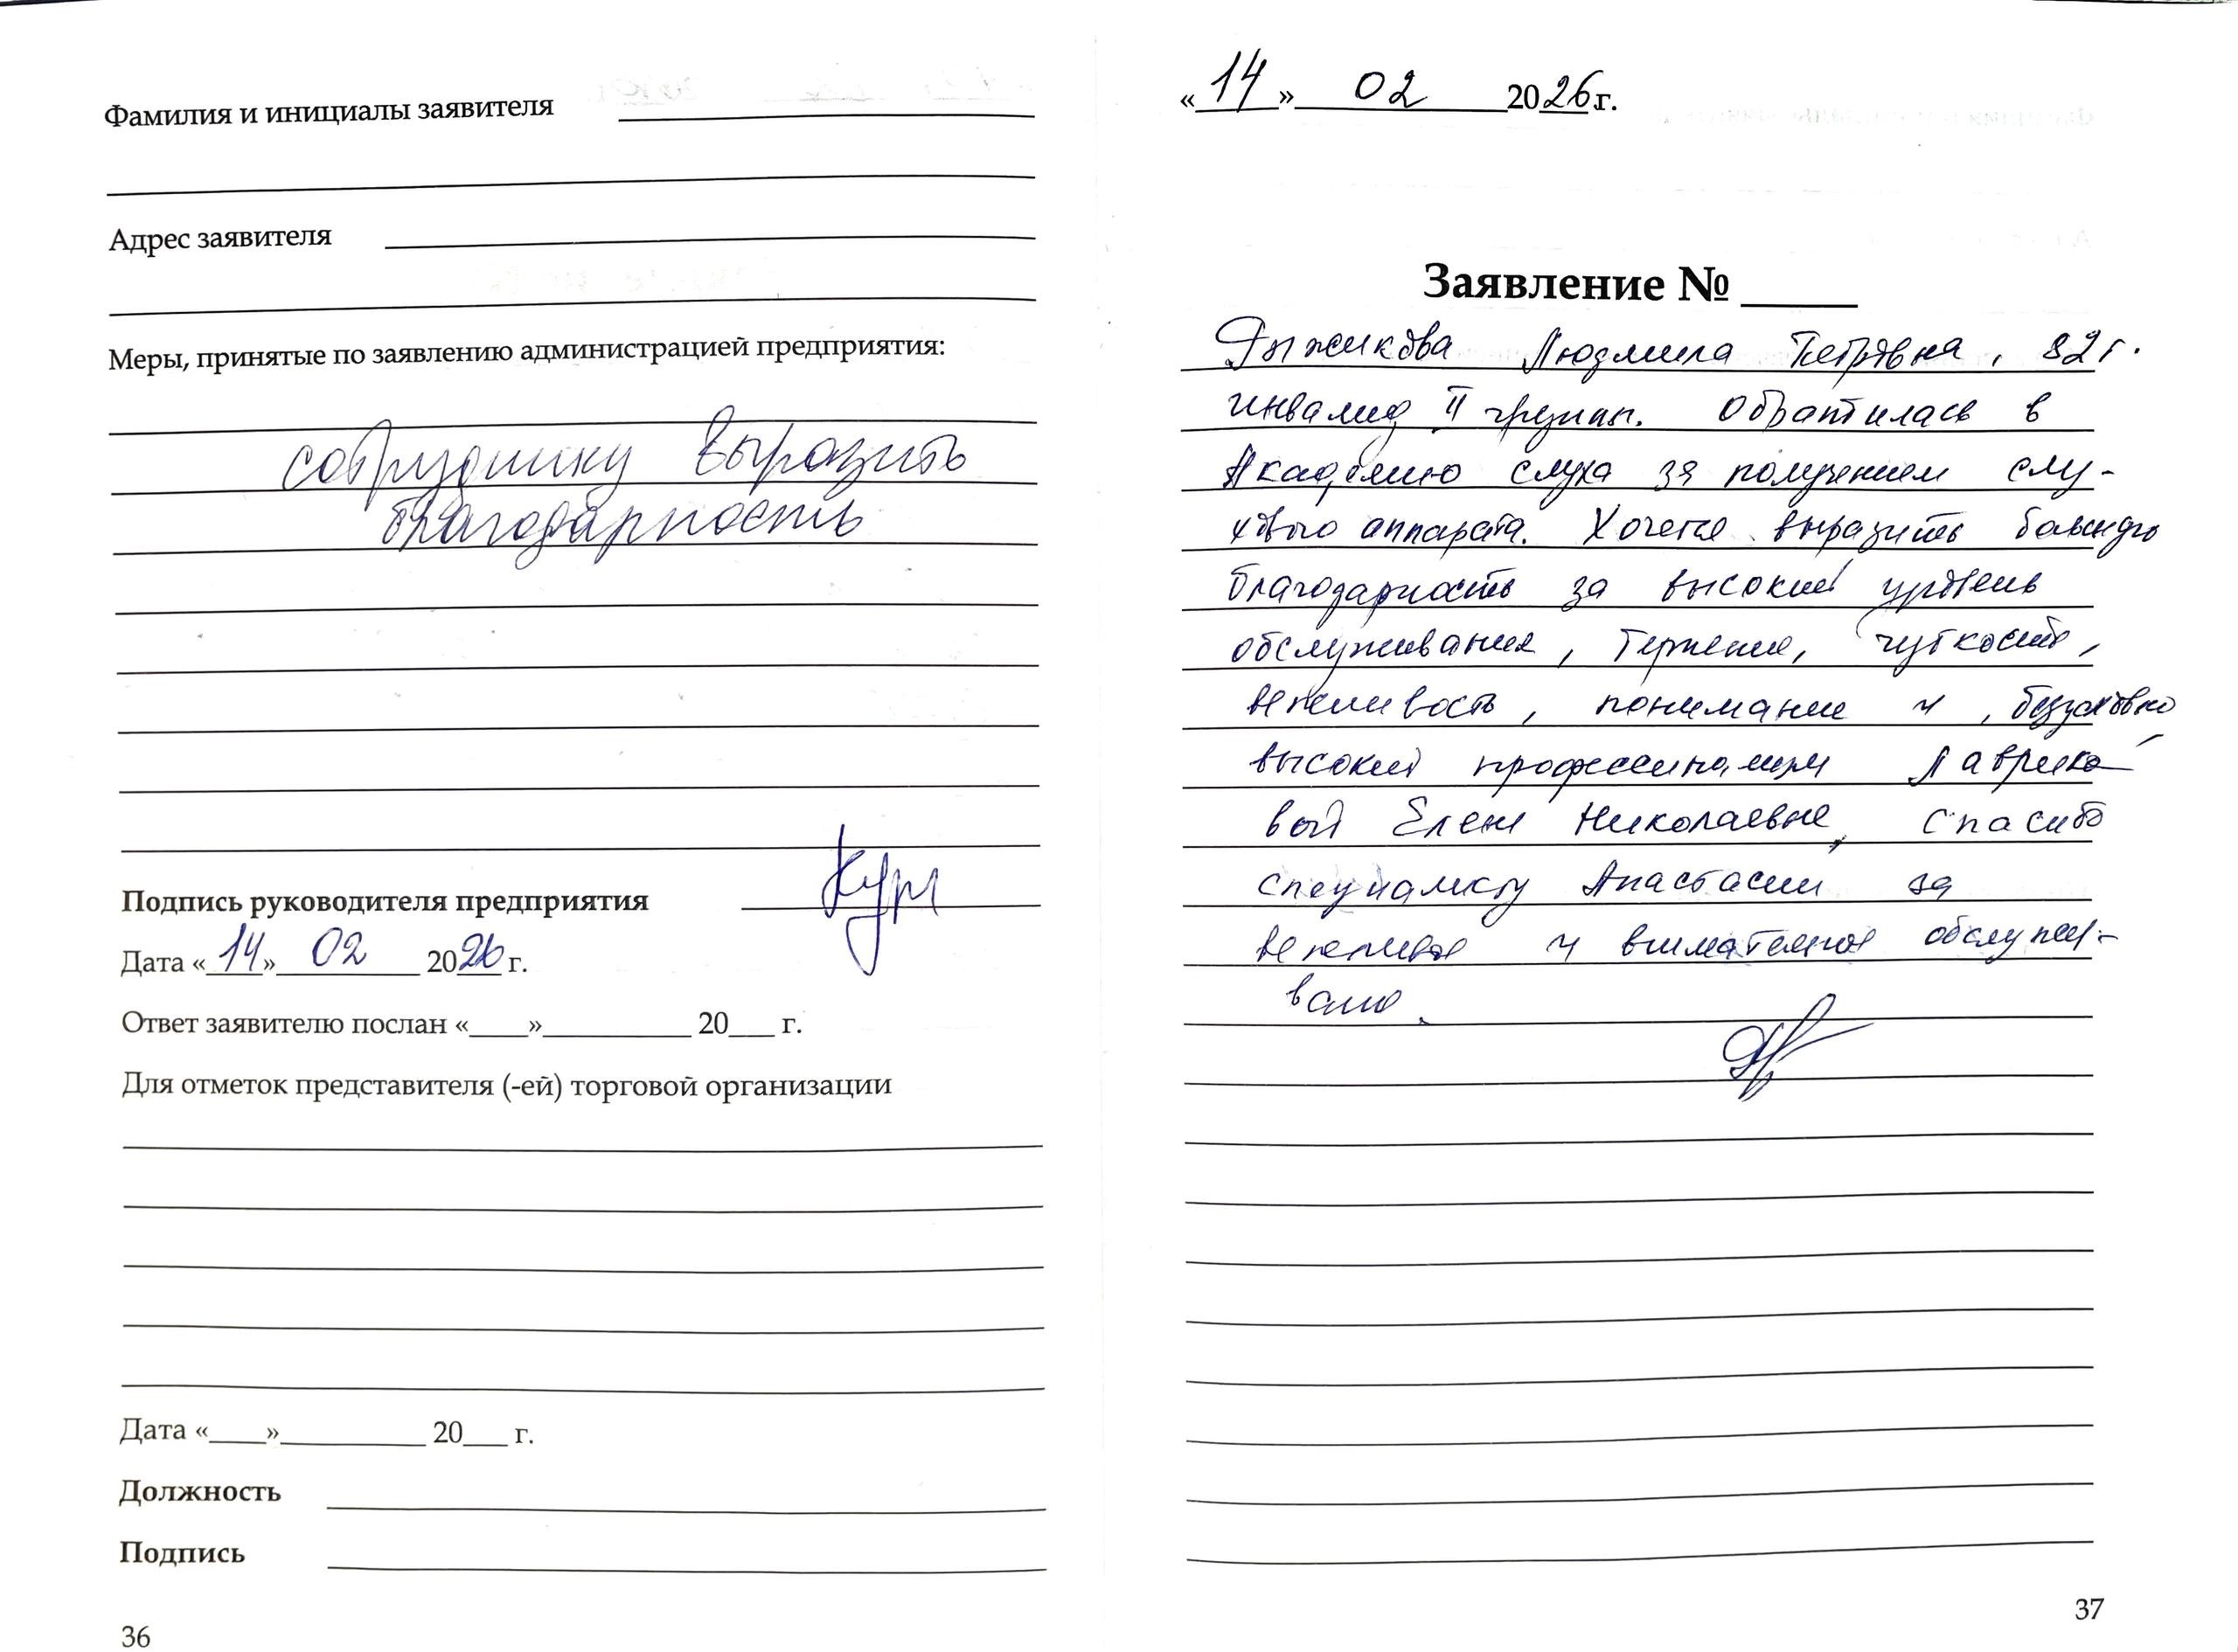 Фамилия и инициалы заявителя
Адрес заявителя
Меры, принятые по заявлению администрацией предприятия:
сотруднику выразить
благодарность
Подпись руководителя предприятия
Дата «14» 02 2026 г.
Ответ заявителю послан «____»__________ 20___ г.
Для отметок представителя (-ей) торговой организации
Дата «____»__________ 20___ г.
Должность
Подпись
36
«14» 02 2026 г.
Заявление № _____
Рыжикова Людмила Петровна, 82 г.
инвалид II группы. Обратилась в
Академию слуха за получением слу-
хового аппарата. Хочется выразить большую
благодарность за высокий уровень
обслуживания, терпение, чуткость,
вежливость, понимание и, безусловно
высокий профессионализм Лаврико-
вой Елене Николаевне, спасибо
специалисту Анастасии за
вежливое и внимательное обслужи-
вание.
37